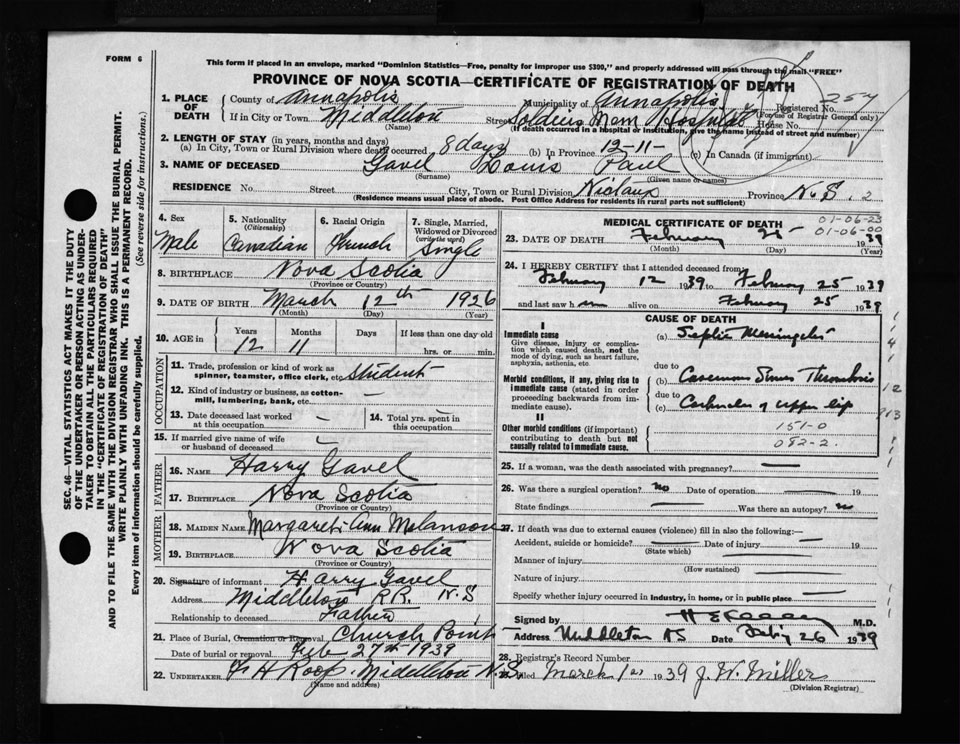 FORM 6
This form if placed in an envelope, marked "Dominion Statistics—Free, penalty for improper use $300," and properly addressed will pass through the mail "FREE"
PROVINCE OF NOVA SCOTIA—CERTIFICATE OF REGISTRATION OF DEATH
1. PLACE OF DEATH County of Annapolis Municipality of Annapolis Registered No. 257
(For use of Registrar General only)
If in City or Town Middleton Street Soldiers Mem. Hospital House No.
(Name) (If death occurred in a hospital or institution, give the name instead of street and number)
2. LENGTH OF STAY (in years, months and days)
(a) In City, Town or Rural Division where death occurred 8 days (b) In Province 12-11- (c) In Canada (if immigrant)
3. NAME OF DECEASED Gavel Louis Paul
(Surname) (Given name or names)
RESIDENCE No. Street City, Town or Rural Division Nictaux Province N.S. 2
(Residence means usual place of abode. Post Office Address for residents in rural parts not sufficient)
SEC. 46—VITAL STATISTICS ACT MAKES IT THE DUTY
OF THE UNDERTAKER OR PERSON ACTING AS UNDER-
TAKER TO OBTAIN ALL THE PARTICULARS REQUIRED
IN THE "CERTIFICATE OF REGISTRATION OF DEATH"
AND TO FILE THE SAME WITH THE DIVISION REGISTRAR WHO SHALL ISSUE THE BURIAL PERMIT.
WRITE PLAINLY WITH UNFADING INK. THIS IS A PERMANENT RECORD.
Every item of information should be carefully supplied. (See reverse side for instructions.)
4. Sex Male
5. Nationality (Citizenship) Canadian
6. Racial Origin French
7. Single, Married, Widowed or Divorced (write the word) Single
8. BIRTHPLACE Nova Scotia
(Province or Country)
9. DATE OF BIRTH March 12th 1926
(Month) (Day) (Year)
10. AGE in Years 12 Months 11 Days If less than one day old hrs. or min.
OCCUPATION
11. Trade, profession or kind of work as spinner, teamster, office clerk, etc. Student
12. Kind of industry or business, as cotton-mill, lumbering, bank, etc.
13. Date deceased last worked at this occupation
14. Total yrs. spent in this occupation
15. If married give name of wife or husband of deceased
FATHER
16. NAME Harry Gavel
17. BIRTHPLACE Nova Scotia
(Province or Country)
MOTHER
18. MAIDEN NAME Margaret Ann Melanson
19. BIRTHPLACE Nova Scotia
(Province or Country)
20. Signature of informant Harry Gavel
Address Middleton R.R. N.S
Relationship to deceased Father
21. Place of Burial, Cremation or Removal Church Point
Date of burial or removal Feb 27th 1939
22. UNDERTAKER F H Roop. Middleton N.S.
(Name and address)
MEDICAL CERTIFICATE OF DEATH
01-06-23
01-06-00
23. DATE OF DEATH February 25 1939
(Month) (Day) (Year)
24. I HEREBY CERTIFY that I attended deceased from
February 12 1939 to February 25 1939
and last saw h im alive on February 25 1939
CAUSE OF DEATH
I
Immediate cause
Give disease, injury, or complication which caused death, not the mode of dying, such as heart failure, asphyxia, asthenia, etc
(a) Septic Meningitis
due to
Morbid conditions, if any, giving rise to immediate cause (stated in order proceeding backwards from immediate cause).
(b) Cavernous Sinus Thrombosis
due to
(c) Carbuncle of upper lip
II
Other morbid conditions (if important) contributing to death but not causally related to immediate cause.
151-0
082-2.
25. If a woman, was the death associated with pregnancy?
26. Was there a surgical operation? no Date of operation 19
State findings Was there an autopsy? no
27. If death was due to external causes (violence) fill in also the following:
Accident, suicide or homicide? Date of injury 19
(State which)
Manner of injury
(How sustained)
Nature of injury
Specify whether injury occurred in industry, in home, or in public place
Signed by M.D.
Address Middleton NS Date Feb'y 26 1939
28. Registrar's Record Number
Filed March 1st 1939 J. W. Miller
(Division Registrar)